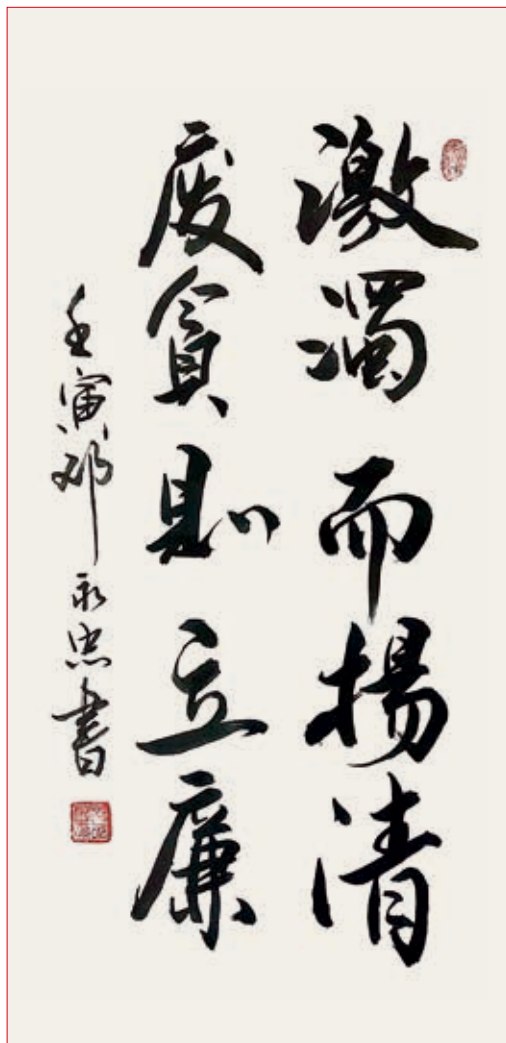 激濁而揚清
废貪則立廉
壬寅邓永忠書